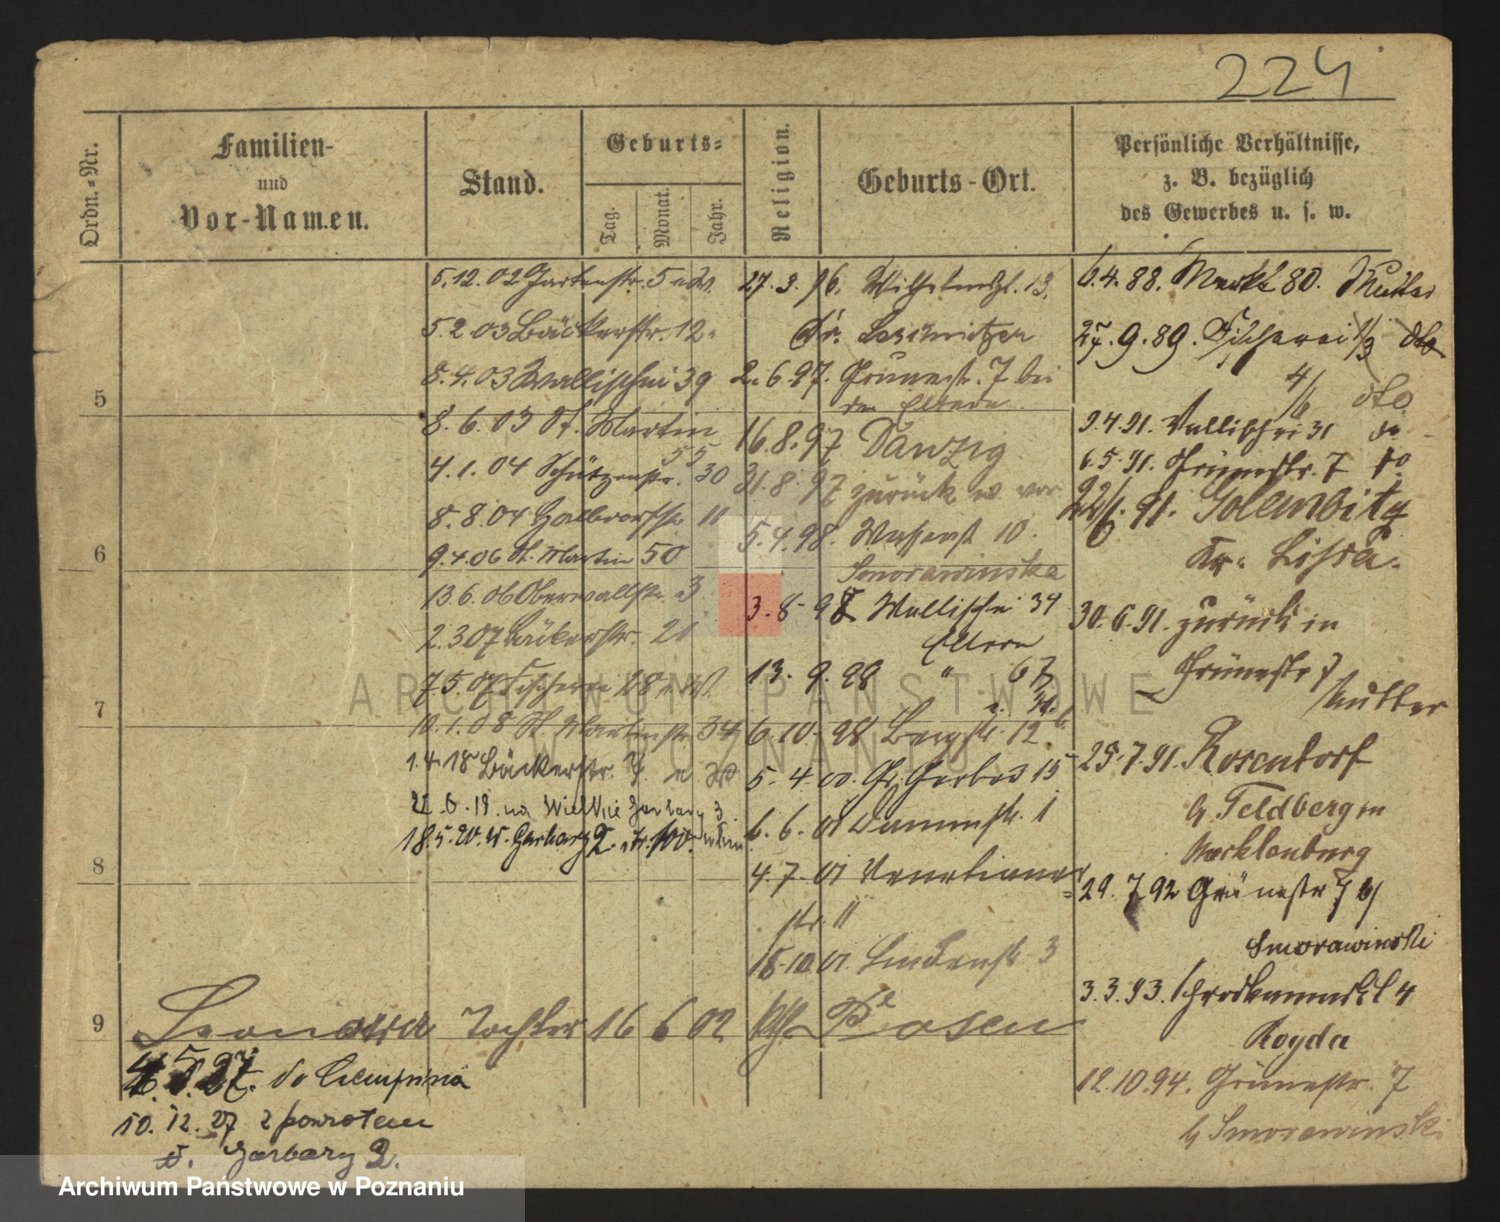 224
Ordn.-Nr.
Familien-
und
Vor-Namen.
Stand.
Geburts-
Tag.
Monat.
Jahr.
Religion.
Geburts-Ort.
Persönliche Verhältnisse,
z. B. bezüglich
des Gewerbes u. s. w.
5.12.02 Gartenstr. 5
5.2.03 Bäckerstr. 12
8.4.03 Wallischei 39
8.6.03 St. Martin
55
4.1.04 Schützenstr. 30
8.8.04 Halbdorfstr. 10
9.4.06 St. Martin 50
13.6.06 Oberwallstr. 3
2.3.07 Bäckerstr. 21
7.5.07 Fischerei
10.1.08 St. Martinstr. 34
1.4.18 Bäckerstr.
na Wielkie Garbary 3
18.5.20. W. Garbary 2
27.3.96. Wilhelmspl. 13.
Dr. Leschnitzer
2.6.97. Grünestr. 7 bei
den Eltern
16.8.97 Danzig
31.8.97 zurück w. vor
5.4.98. Wasserst 10.
Smorawinska
3.8.98 Wallischei 34
Eltern
13.9.98 " 67
6.10.98 Bergstr. 12
5.4.00. Gr. Gerber 15
6.6.01 Dammstr. 1
4.7.01 Venetianer
str. 11
15.10.01 Lindenstr. 3
6.4.88. Markt 80. Mutter
27.9.89. Fischerei dto
dto
9.4.91. Wallischei 31 do
6.5.91. Grünestr. 7 do
91. Golembitz
Kr. Lissa.
30.6.91. zurück in
Grünestr 7
Mutter
25.7.91. Rosendorf
b Feldberg in
Mecklenburg
29.7.92 Grünestr 7 b/
Smorawinski
3.3.93. Schrodkamarkt 4
Rogda
12.10.94. Grünestr. 7
b Smorawinski
5
6
7
8
9
Leonarda Tochter 16 6 02 kth. Posen
4.5.27. do Kempina
10.12.27 z powrotem
Garbary 2.
ARCHIWUM PAŃSTWOWE
W POZNANIU
Archiwum Państwowe w Poznaniu